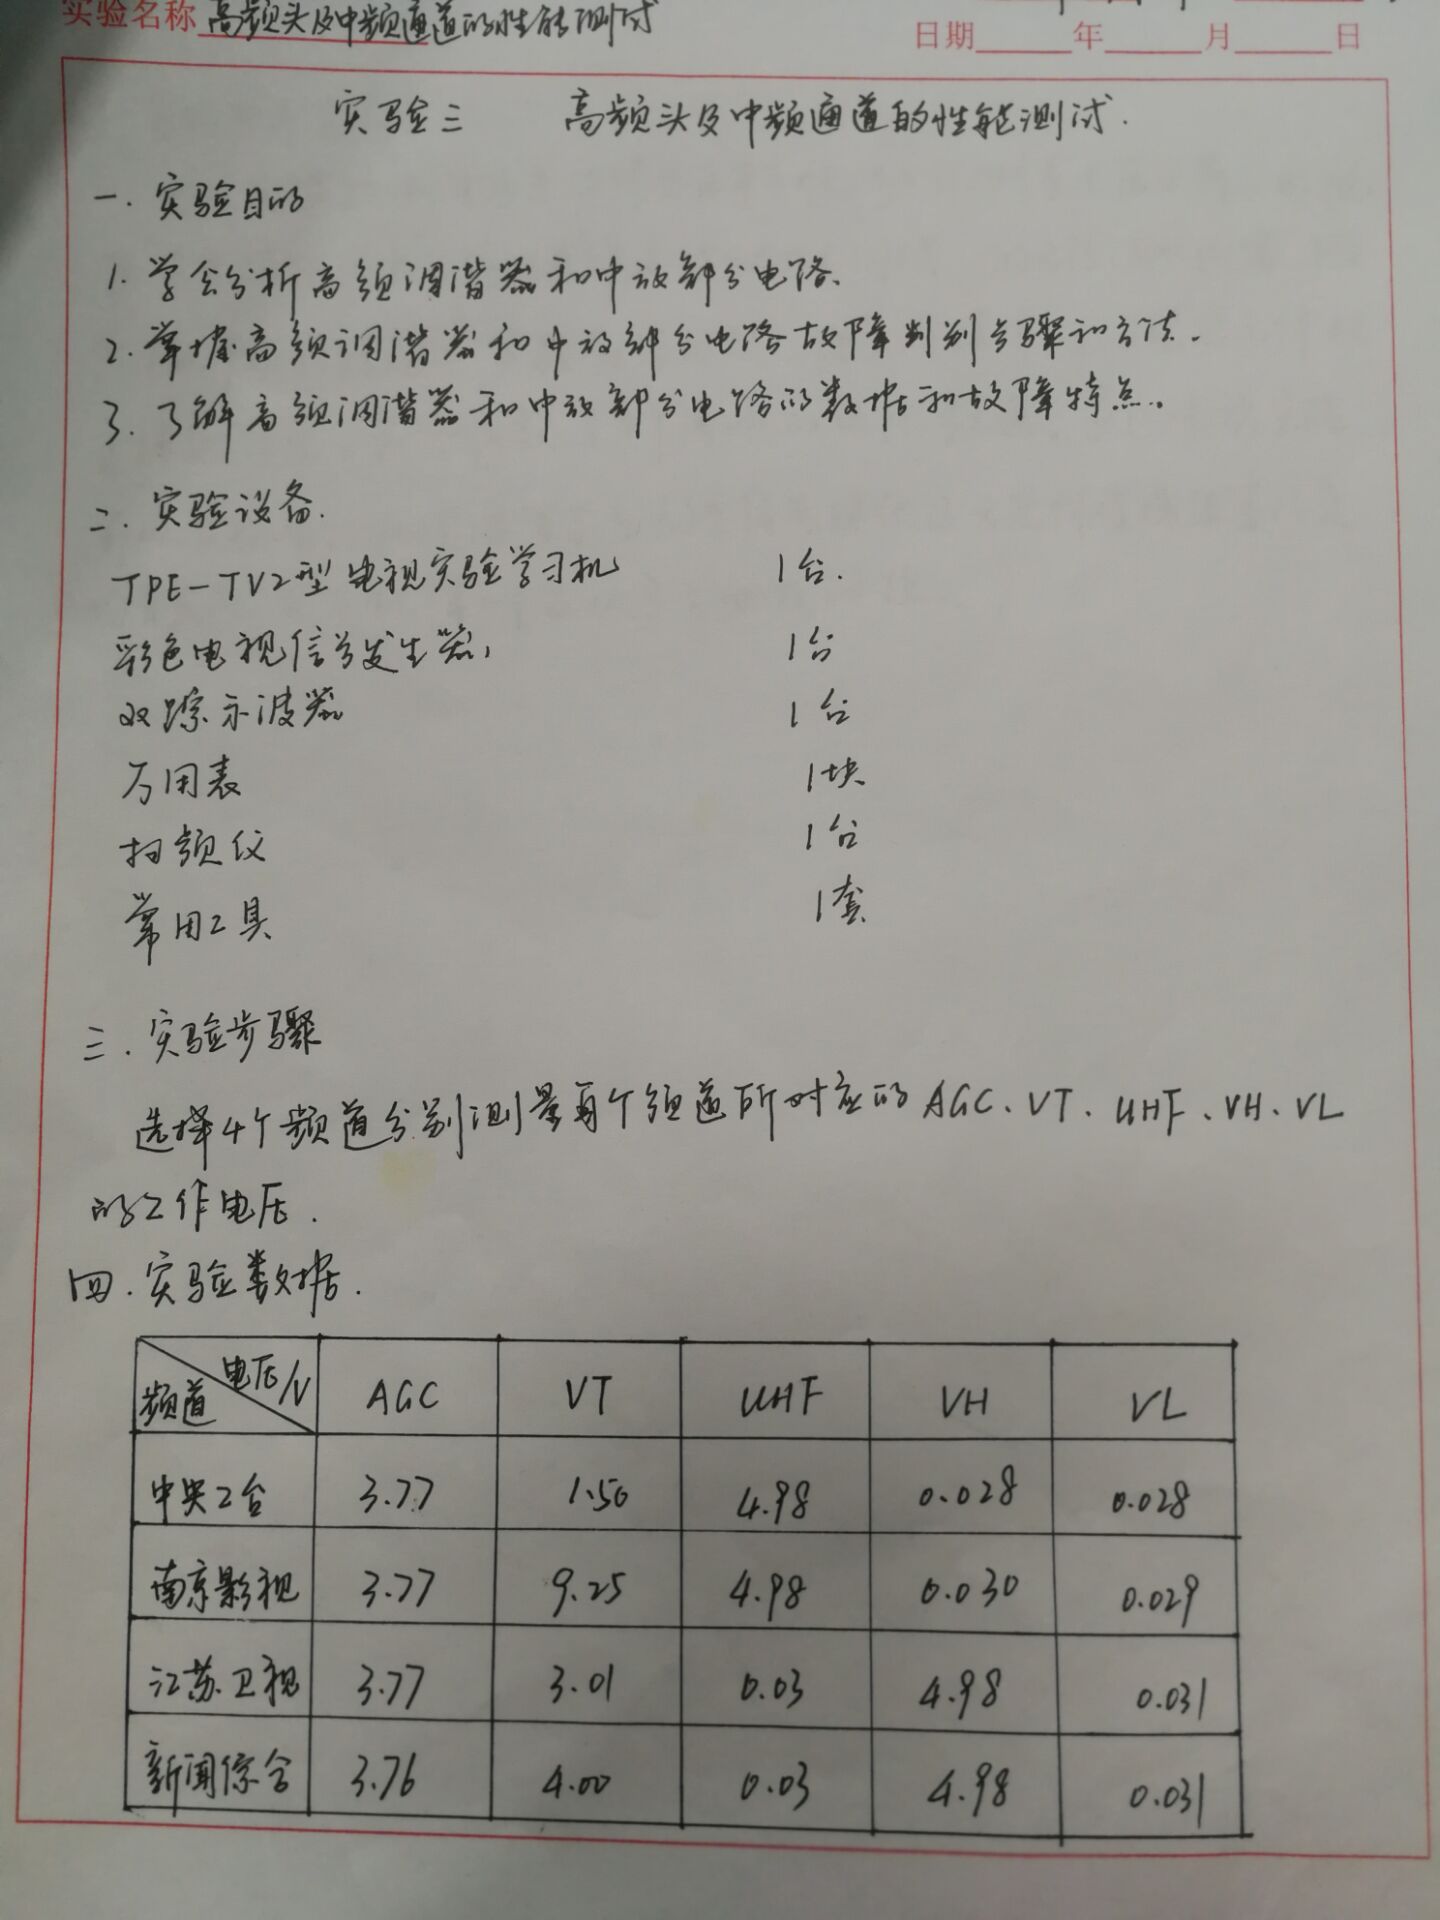 实验名称 高频头及中频通道的性能测试
日期 年 月 日
实验三 高频头及中频通道的性能测试.
一. 实验目的
1. 学会分析高频调谐器和中放部分电路.
2. 掌握高频调谐器和中放部分电路故障判别步骤和方法.
3. 了解高频调谐器和中放部分电路的数据和故障特点。
二. 实验设备.
TPE-TV2型电视实验学习机 1台.
彩色电视信号发生器, 1台
双踪示波器 1台
万用表 1块
扫频仪 1台
常用工具 1套
三. 实验步骤
选择4个频道分别测量每个频道所对应的AGC、VT、UHF、VH、VL
的工作电压.
四. 实验数据.
频道 电压/V AGC VT UHF VH VL
中央2台 3.77 1.50 4.98 0.028 0.028
南京影视 3.77 9.25 4.98 0.030 0.029
江苏卫视 3.77 3.01 0.03 4.98 0.031
新闻综合 3.76 4.00 0.03 4.98 0.031